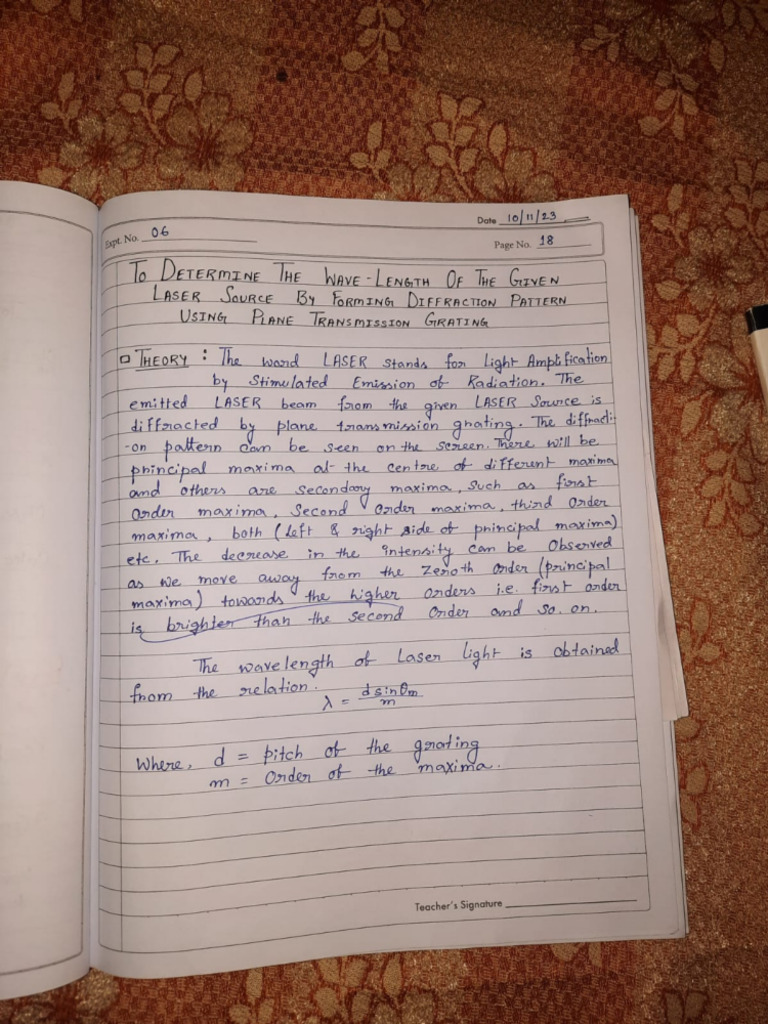 Date 10/11/23
Expt. No. 06
Page No. 18
TO DETERMINE THE WAVE-LENGTH OF THE GIVEN
LASER SOURCE BY FORMING DIFFRACTION PATTERN
USING PLANE TRANSMISSION GRATING
□ THEORY : The word LASER stands for Light Amplification
by Stimulated Emission of Radiation. The
emitted LASER beam from the given LASER Source is
diffracted by plane transmission grating. The diffracti-
-on pattern can be seen on the screen. There will be
principal maxima at the centre of different maxima
and others are secondary maxima, such as first
order maxima, second order maxima, third order
maxima, both (left & right side of principal maxima)
etc. The decrease in the intensity can be Observed
as we move away from the zeroth order (principal
maxima) towards the higher orders i.e. first order
is brighter than the second order and so. on.
The wavelength of Laser light is obtained
from the relation.
λ = d sinθm / m
Where, d = pitch of the grating
m = order of the maxima.
Teacher's Signature